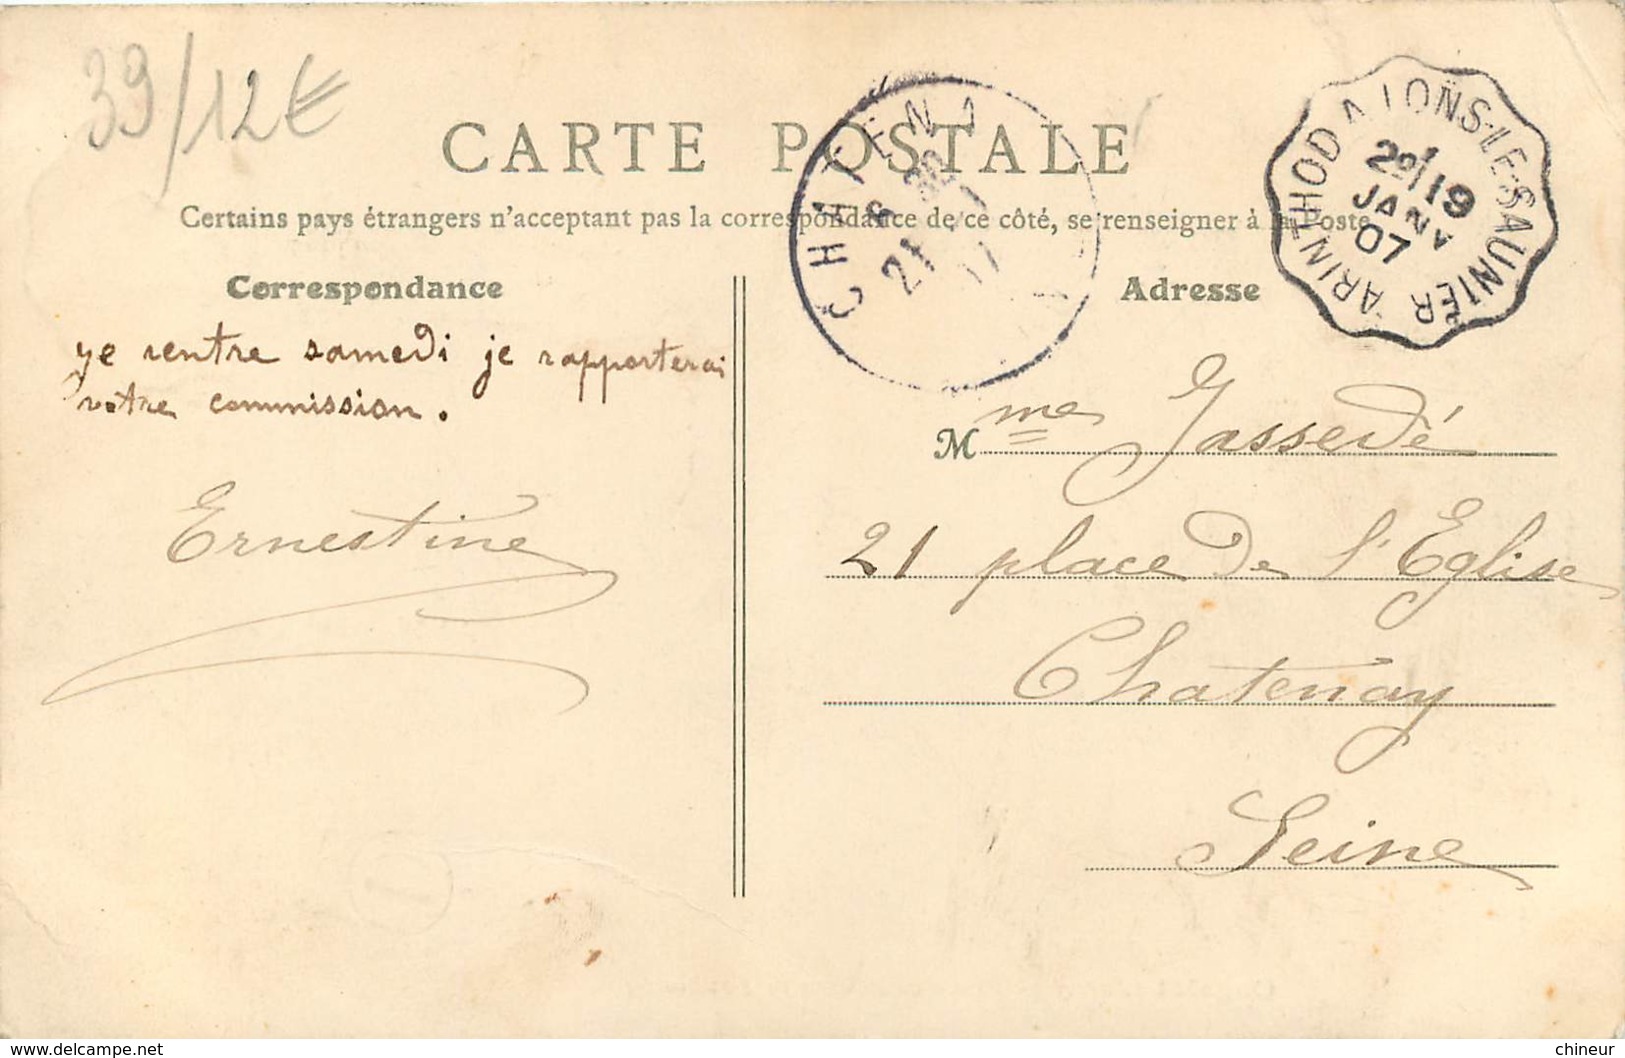 39/12€
CARTE POSTALE
Certains pays étrangers n'acceptent pas la correspondance de ce côté, se renseigner à la Poste
Correspondance
Adresse
ARINTHOD A LONS-LE-SAUNIER
19
JANV
07
CHATENAY
21
je rentre samedi je rapporterai
votre commission.
Ernestine
Mme Jassedé
21 place de l'Eglise
Chatenay
Seine
www.delcampe.net
chineur